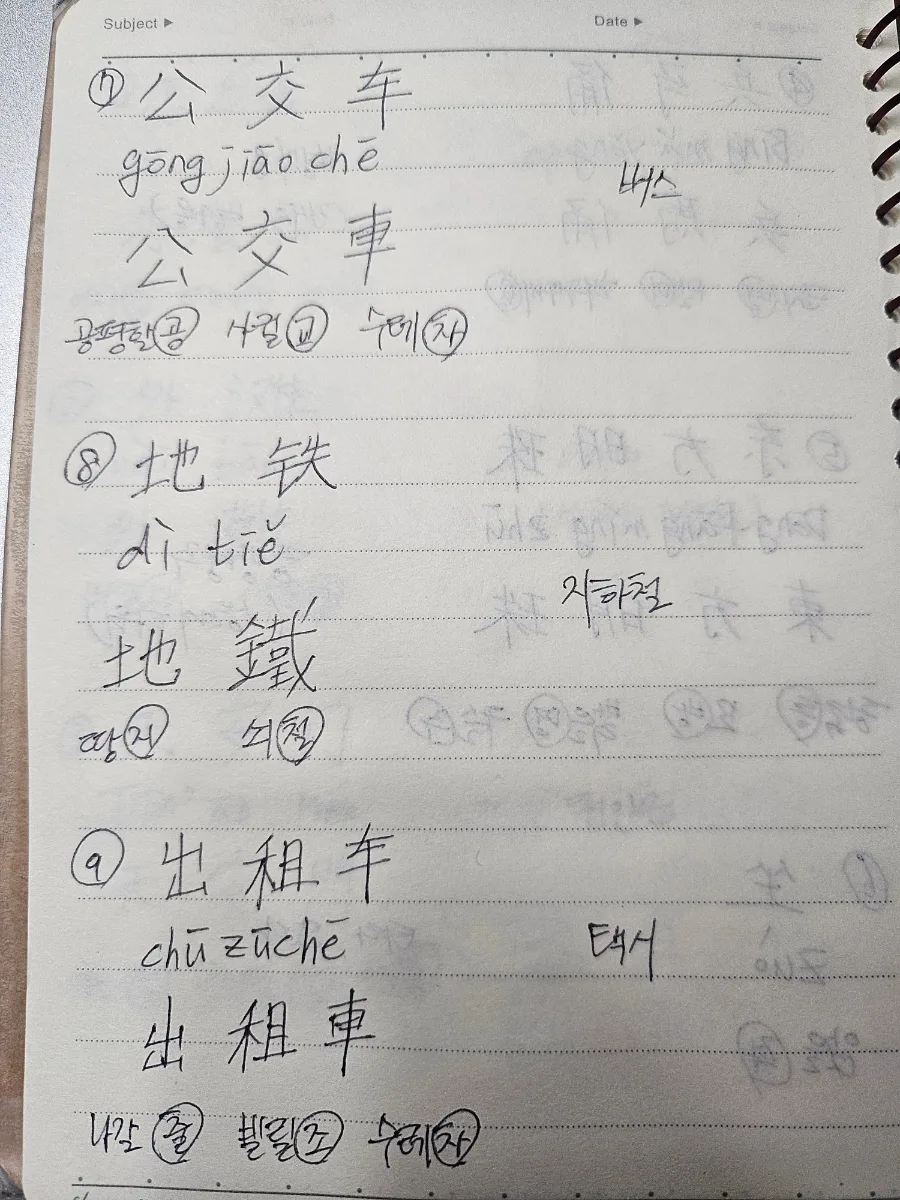 Subject ▶ Date ▶
⑦ 公 交 车
gōng jiāo chē
버스
公 交 車
공평할 공 사귈 교 수레 차
⑧ 地 铁
dì tiě
지하철
地 鐵
땅 지 쇠 철
⑨ 出 租 车
chū zū chē
택시
出 租 車
나갈 출 빌릴 조 수레 차